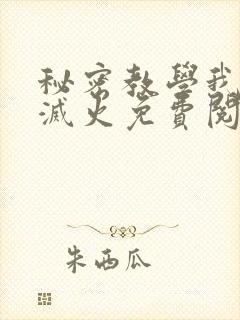 秘密教學我
滅火免費閱
朱西瓜